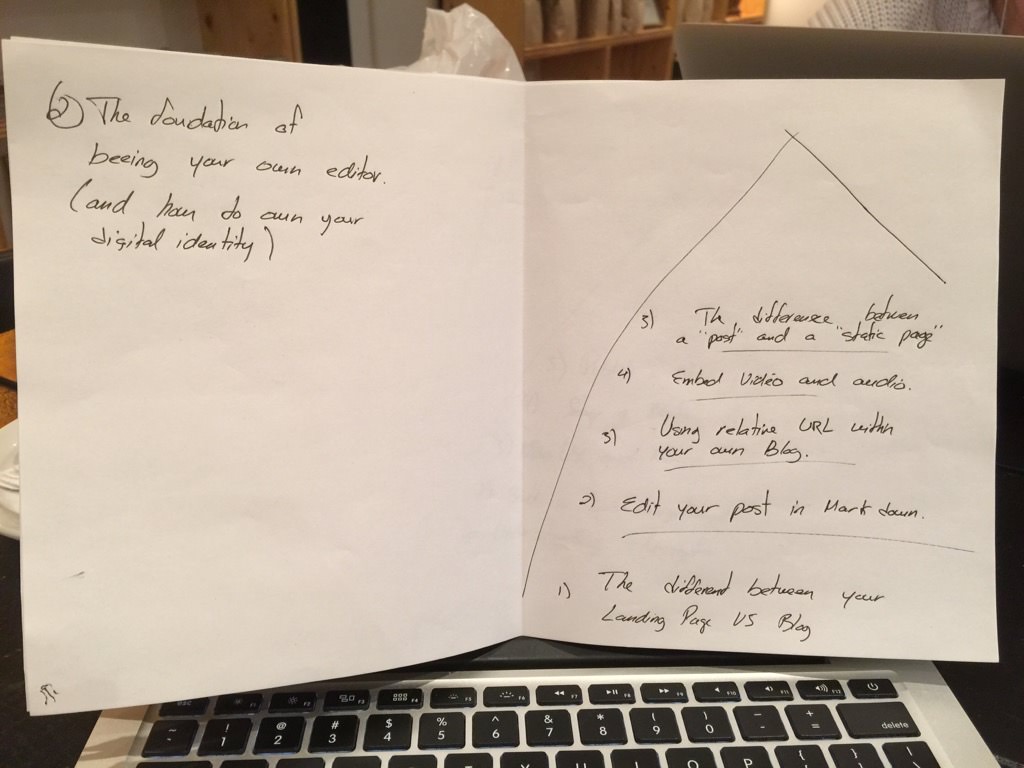 6) The foudation of
beeing your own editor.
(and how to own your
digital identity)
5) The difference between
a "post" and a "static page"
4) Embed Video and audio.
3) Using relative URL within
your own Blog.
2) Edit your post in Markdown.
1) The different between your
Landing Page VS Blog
esc F1 F2 F3 F4 F5 F6 F7 F8 F9 F10 F11 F12
~ ! 1 @ 2 # 3 $ 4 % 5 ^ 6 & 7 * 8 ( 9 ) 0 _ - + = delete